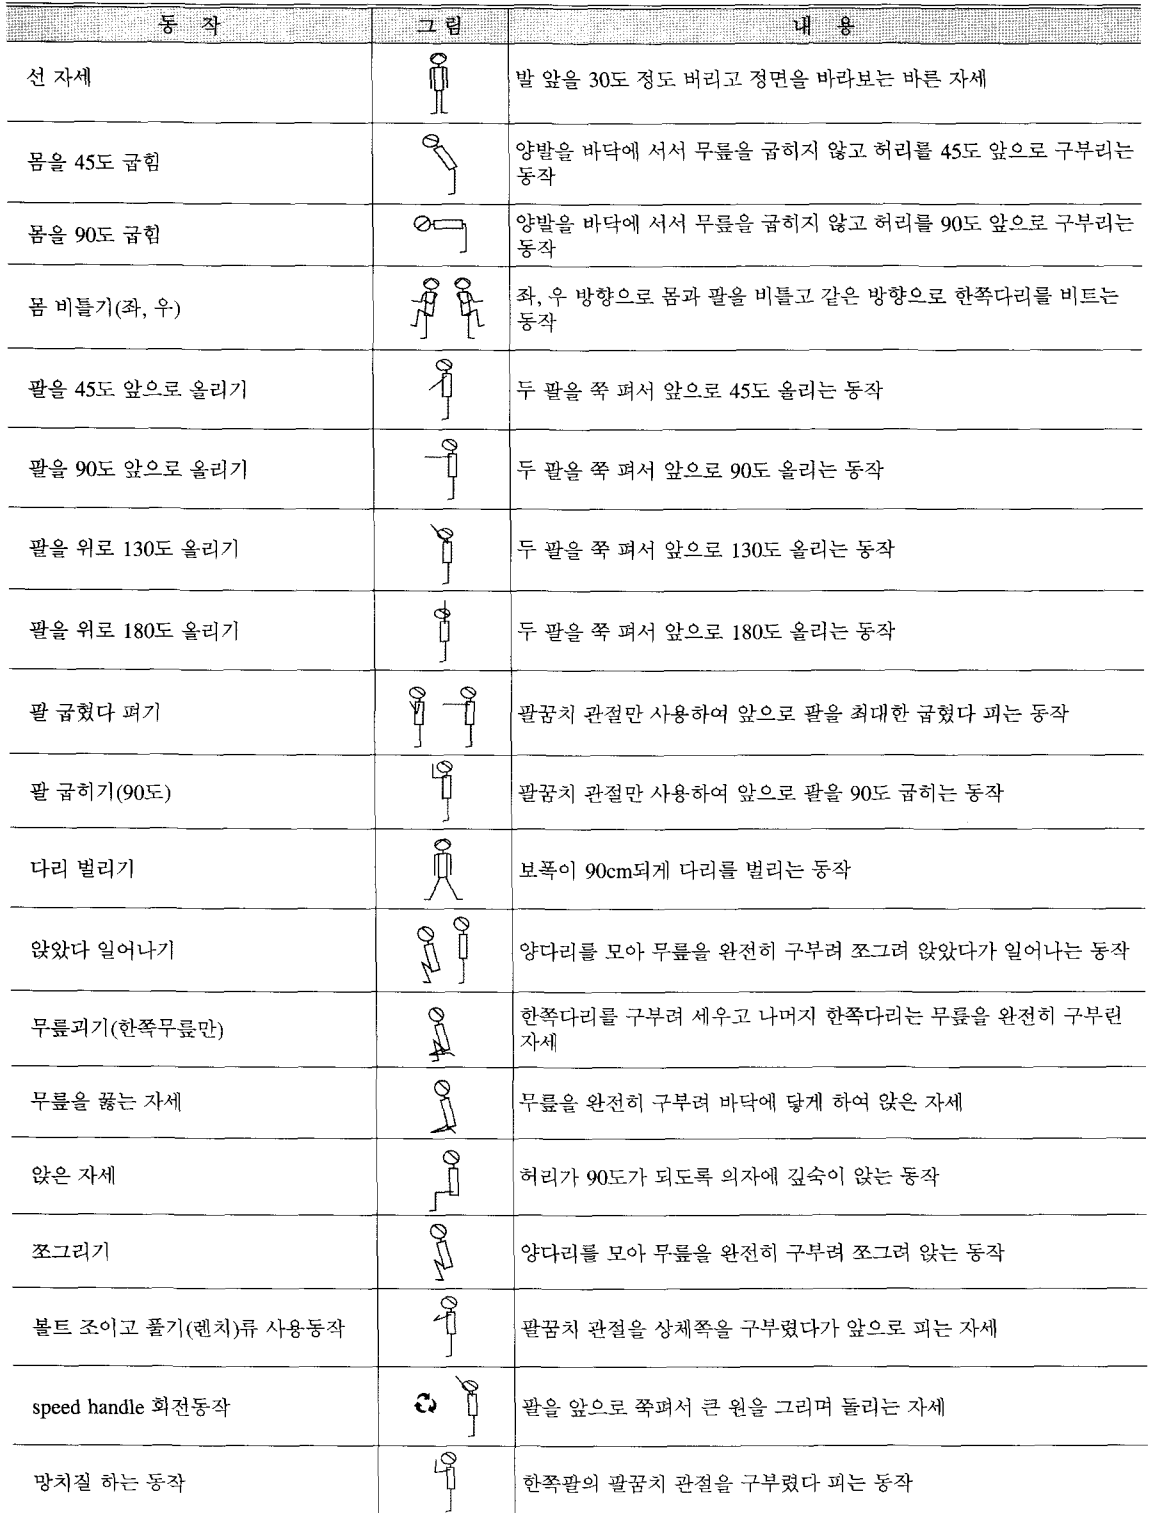 동 작 그 림 내 용
선 자세 발 앞을 30도 정도 버리고 정면을 바라보는 바른 자세
몸을 45도 굽힘 양발을 바닥에 서서 무릎을 굽히지 않고 허리를 45도 앞으로 구부리는
동작
몸을 90도 굽힘 양발을 바닥에 서서 무릎을 굽히지 않고 허리를 90도 앞으로 구부리는
동작
몸 비틀기(좌, 우) 좌, 우 방향으로 몸과 팔을 비틀고 같은 방향으로 한쪽다리를 비트는
동작
팔을 45도 앞으로 올리기 두 팔을 쭉 펴서 앞으로 45도 올리는 동작
팔을 90도 앞으로 올리기 두 팔을 쭉 펴서 앞으로 90도 올리는 동작
팔을 위로 130도 올리기 두 팔을 쭉 펴서 앞으로 130도 올리는 동작
팔을 위로 180도 올리기 두 팔을 쭉 펴서 앞으로 180도 올리는 동작
팔 굽혔다 펴기 팔꿈치 관절만 사용하여 앞으로 팔을 최대한 굽혔다 피는 동작
팔 굽히기(90도) 팔꿈치 관절만 사용하여 앞으로 팔을 90도 굽히는 동작
다리 벌리기 보폭이 90cm되게 다리를 벌리는 동작
앉았다 일어나기 양다리를 모아 무릎을 완전히 구부려 쪼그려 앉았다가 일어나는 동작
무릎괴기(한쪽무릎만) 한쪽다리를 구부려 세우고 나머지 한쪽다리는 무릎을 완전히 구부린
자세
무릎을 꿇는 자세 무릎을 완전히 구부려 바닥에 닿게 하여 앉은 자세
앉은 자세 허리가 90도가 되도록 의자에 깊숙이 앉는 동작
쪼그리기 양다리를 모아 무릎을 완전히 구부려 쪼그려 앉는 동작
볼트 조이고 풀기(렌치)류 사용동작 팔꿈치 관절을 상체쪽을 구부렸다가 앞으로 피는 자세
speed handle 회전동작 팔을 앞으로 쭉펴서 큰 원을 그리며 돌리는 자세
망치질 하는 동작 한쪽팔의 팔꿈치 관절을 구부렸다 피는 동작